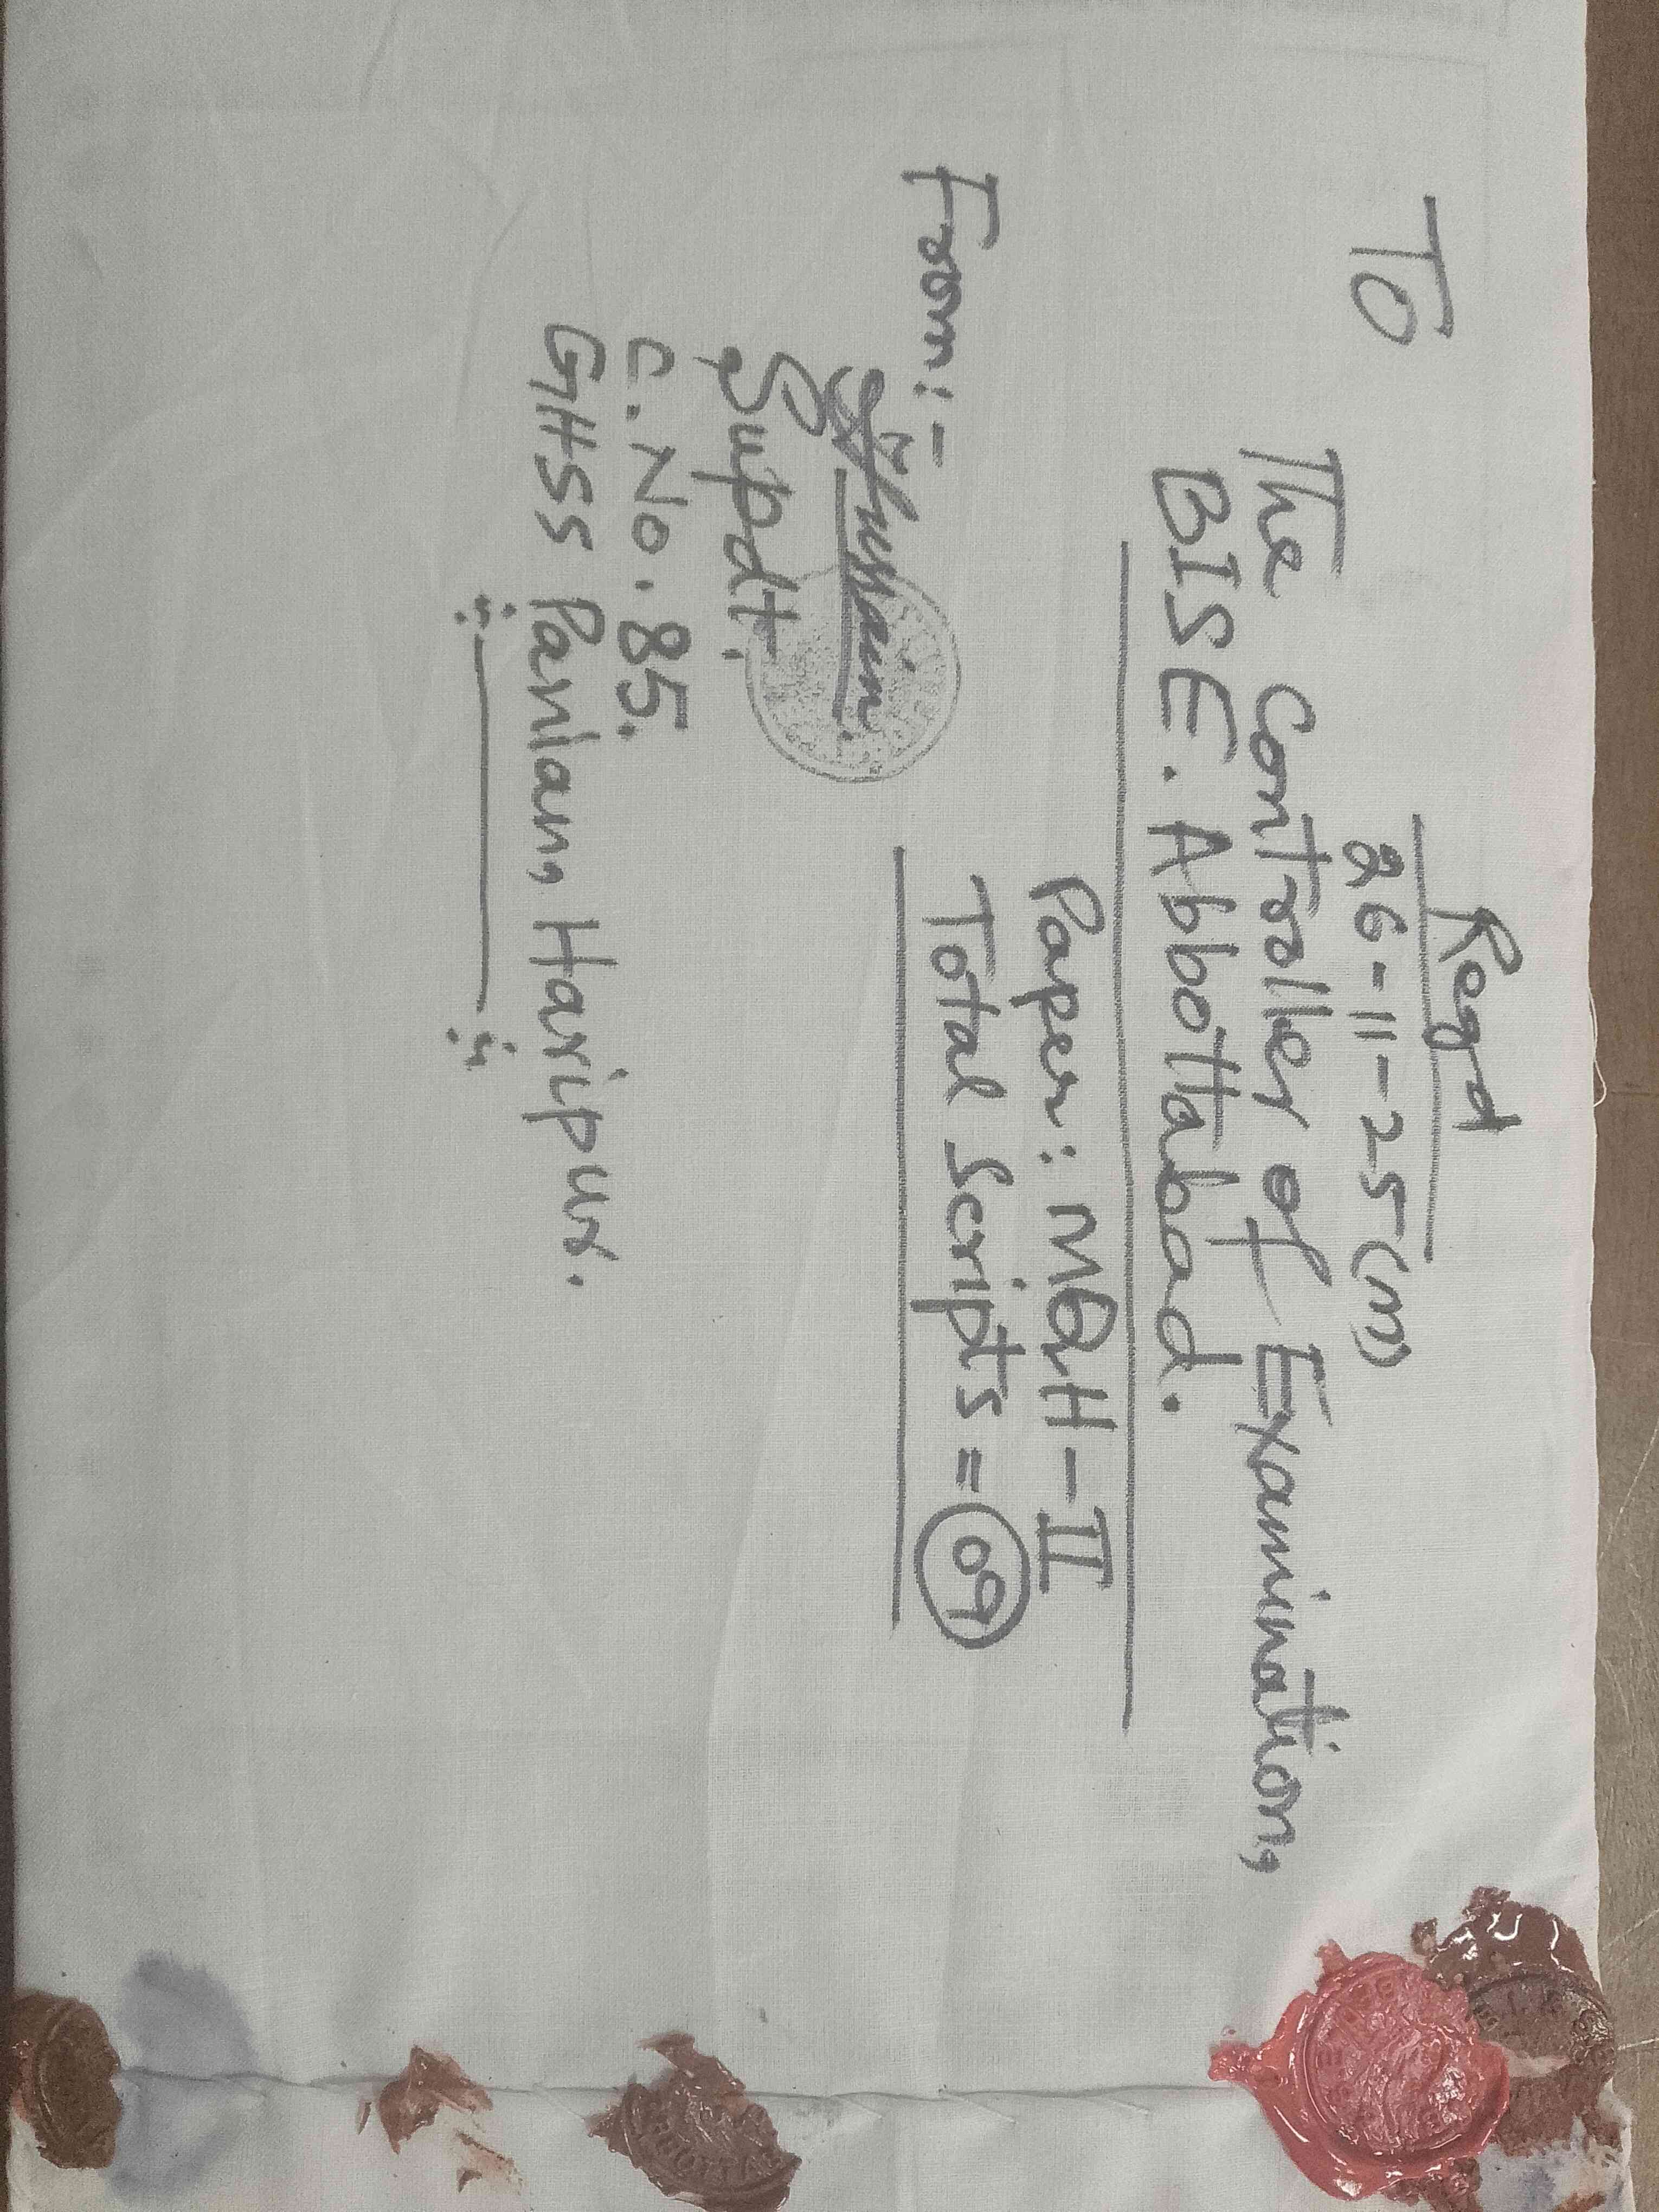 Regd
26-11-25(M)
TO
The Controller of Examination,
BISE. Abbottabad.
Paper: MQH-II
Total Scripts = 09
From:-
Hussain.
Supdt.
C.No. 85.
GHSS Panian, Haripur.